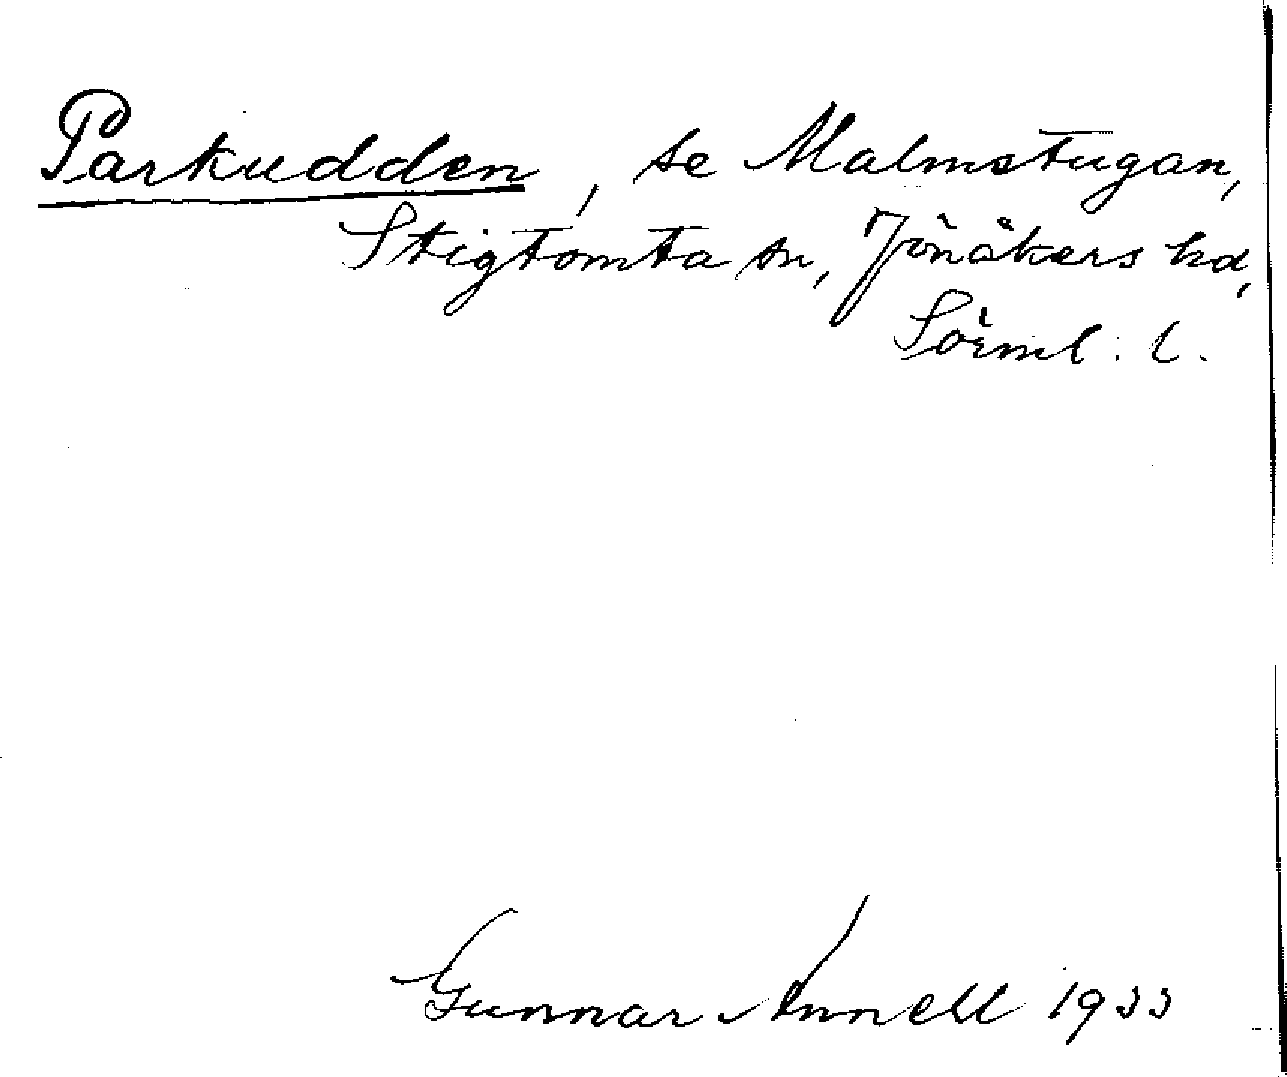 Parkudden, se Malmstugan,
Stigtomta sn, Jönåkers hd,
Sörml. l.
Gunnar Annell 1933